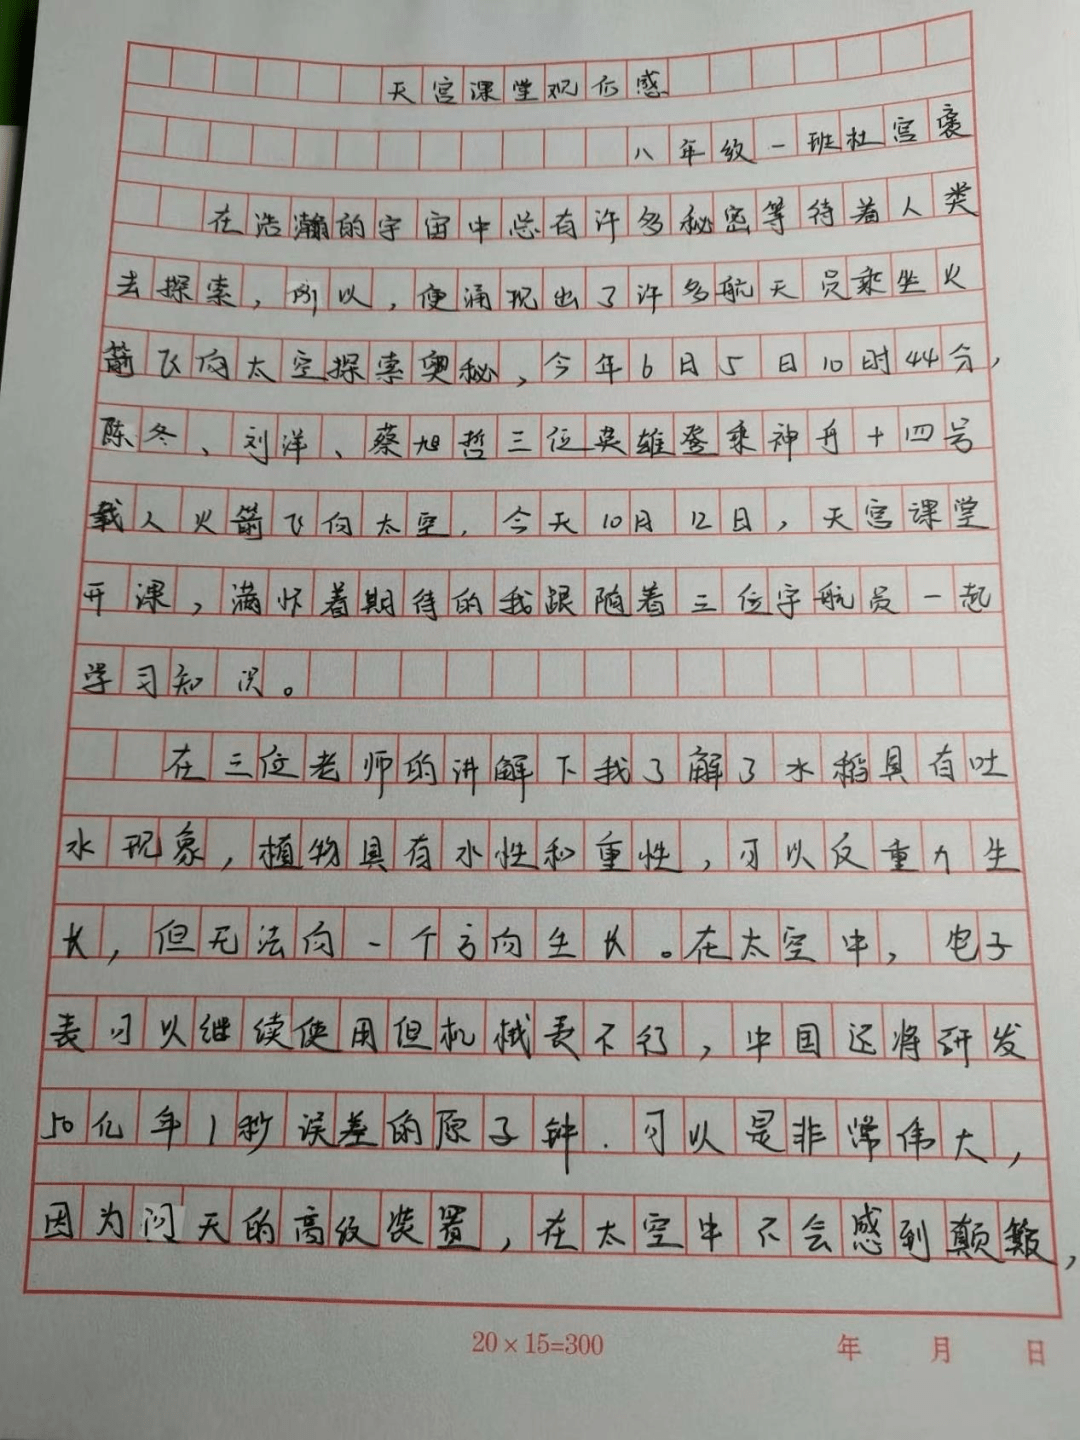 天宫课堂观后感
八年级一班杜宫褒
在浩瀚的宇宙中总有许多秘密等待着人类
去探索，所以，便涌现出了许多航天员乘坐火
箭飞向太空探索奥秘，今年6日5日10时44分，
陈冬、刘洋、蔡旭哲三位英雄登乘神舟十四号
载人火箭飞向太空．今天10月12日，天宫课堂
开课，满怀着期待的我跟随着三位宇航员一起
学习知识。
在三位老师的讲解下我了解了水稻具有吐
水现象，植物具有水性和重性，可以反重力生
长，但无法向一个方向生长。在太空中，电子
表可以继续使用但机械表不行，中国还将研发
50亿年1秒误差的原子钟．可以是非常伟大，
因为问天的高级装置，在太空中不会感到颠簸，
20×15=300 年 月 日